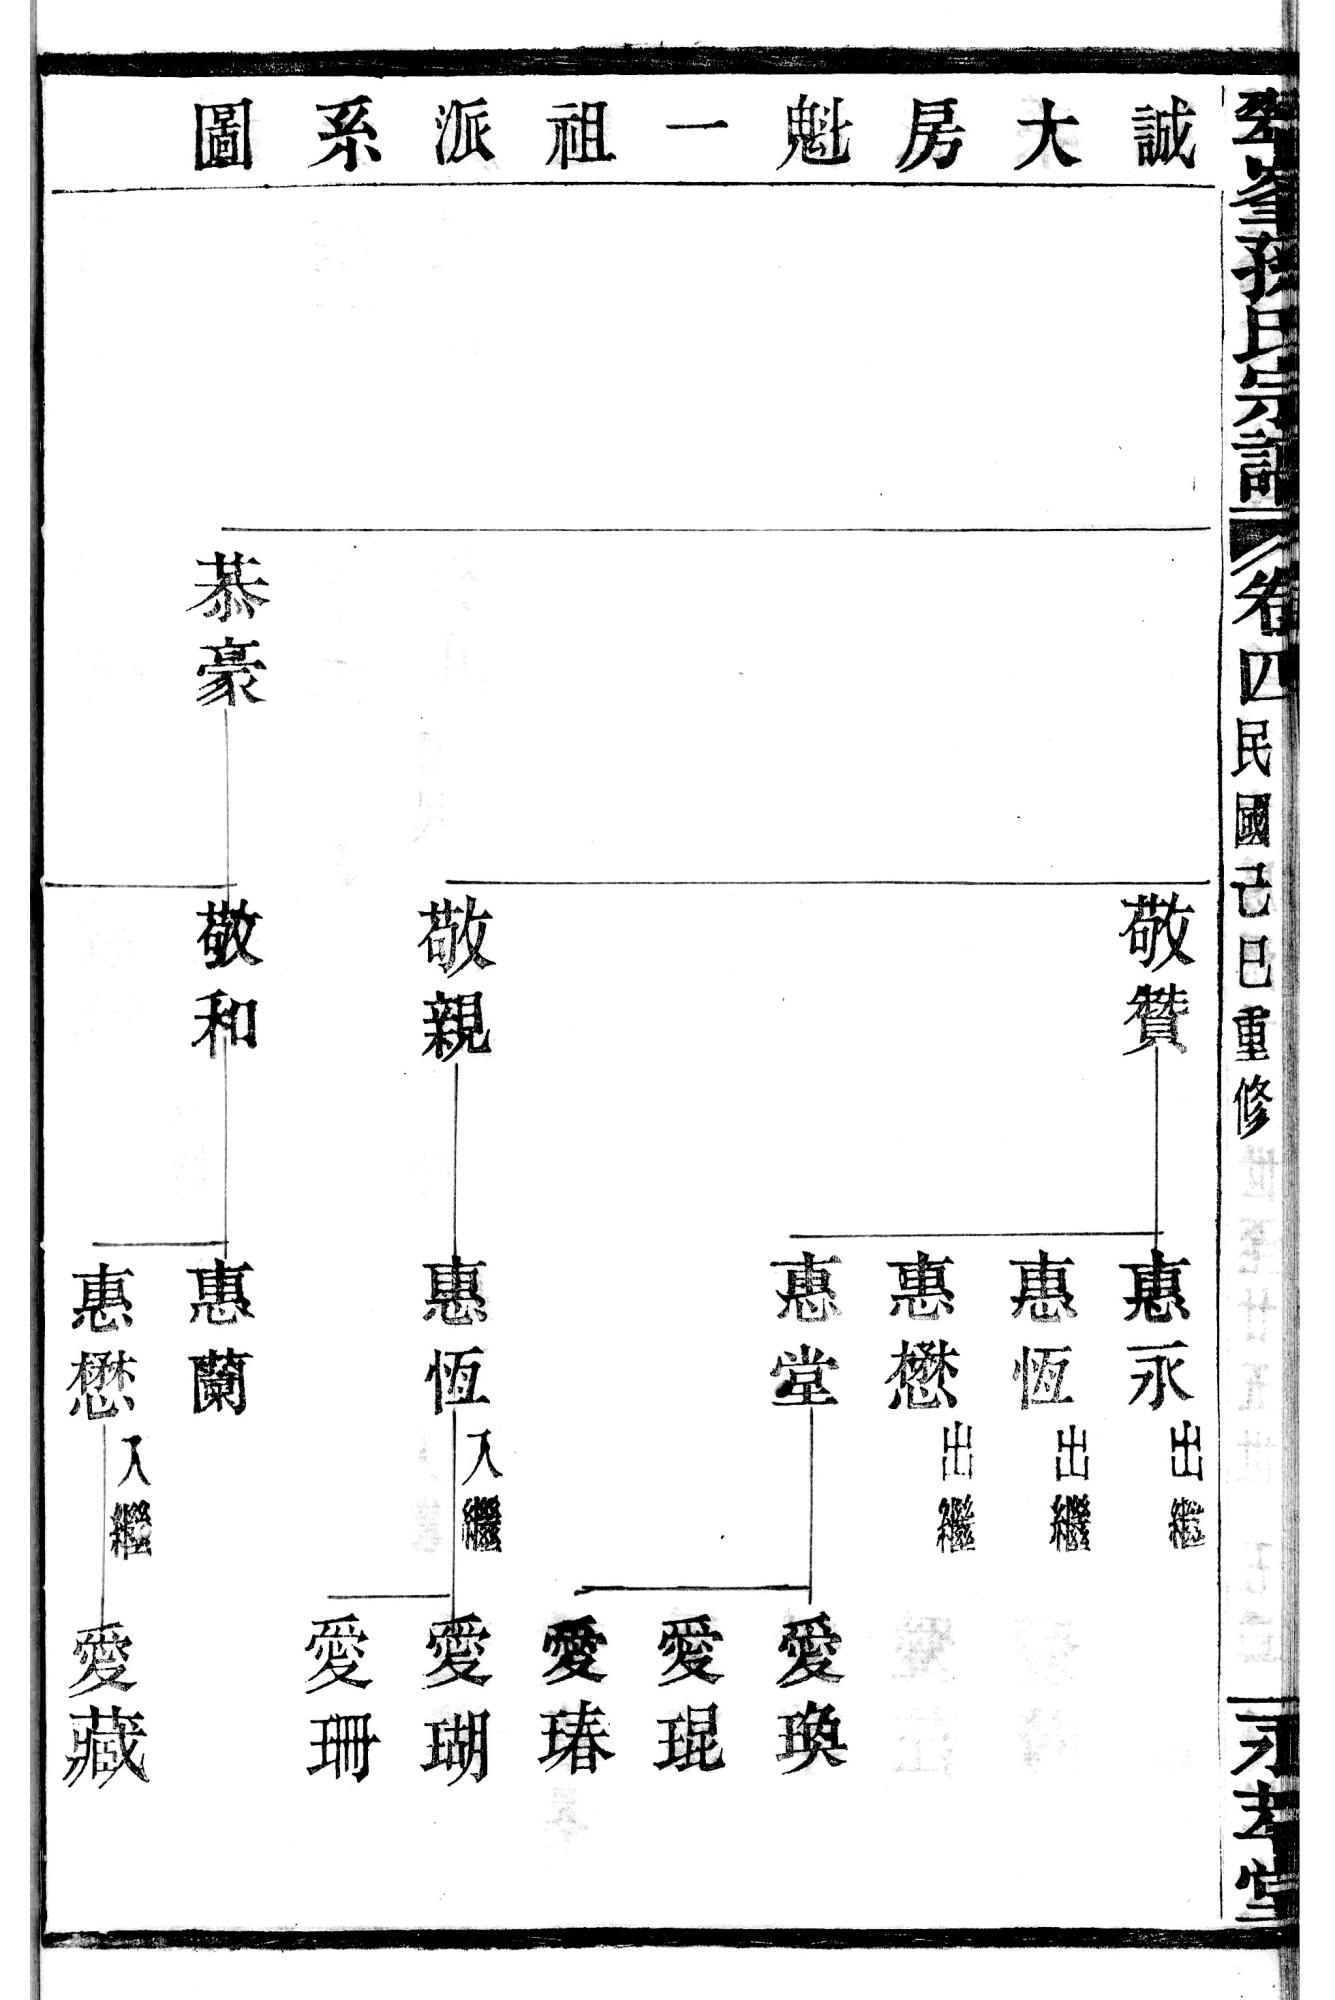 峯孫氏宗譜
卷四
民國己巳重修
誠大房魁一祖派系圖
恭豪
敬賛
敬親
敬和
惠永 出繼
惠恆 出繼
惠懋 出繼
惠堂
惠恆 入繼
惠蘭
惠懋 入繼
愛瑍
愛琨
愛瑃
愛瑚
愛珊
愛藏